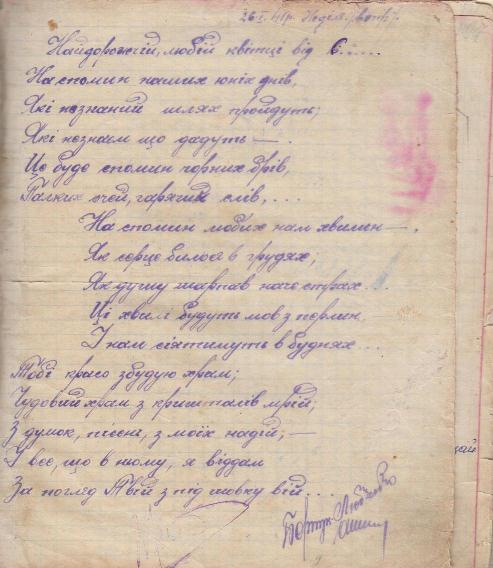 26.I.41р. Неділя.
Найдорожчій, любій квітці від Є.....
На спомин наших юніх днів,
Які незнаний шлях пройдуть;
Які незнам що дадуть —.
Це буде спомин чорних брів,
Палких очей, гарячих слів, ...
На спомин любих нам хвилин —.
Як серце билося в грудях;
Як душу шарпав наче страх...
Ці хвилі будуть мов з перлин.
І нам сіятимуть в буднях...
Тобі красо збудую храм;
Чудовий храм з кришталів мрій;
З думок, пісень, з моїх надій; —
І все, що в ньому, я віддам
За погляд Твій з під шовку вій...